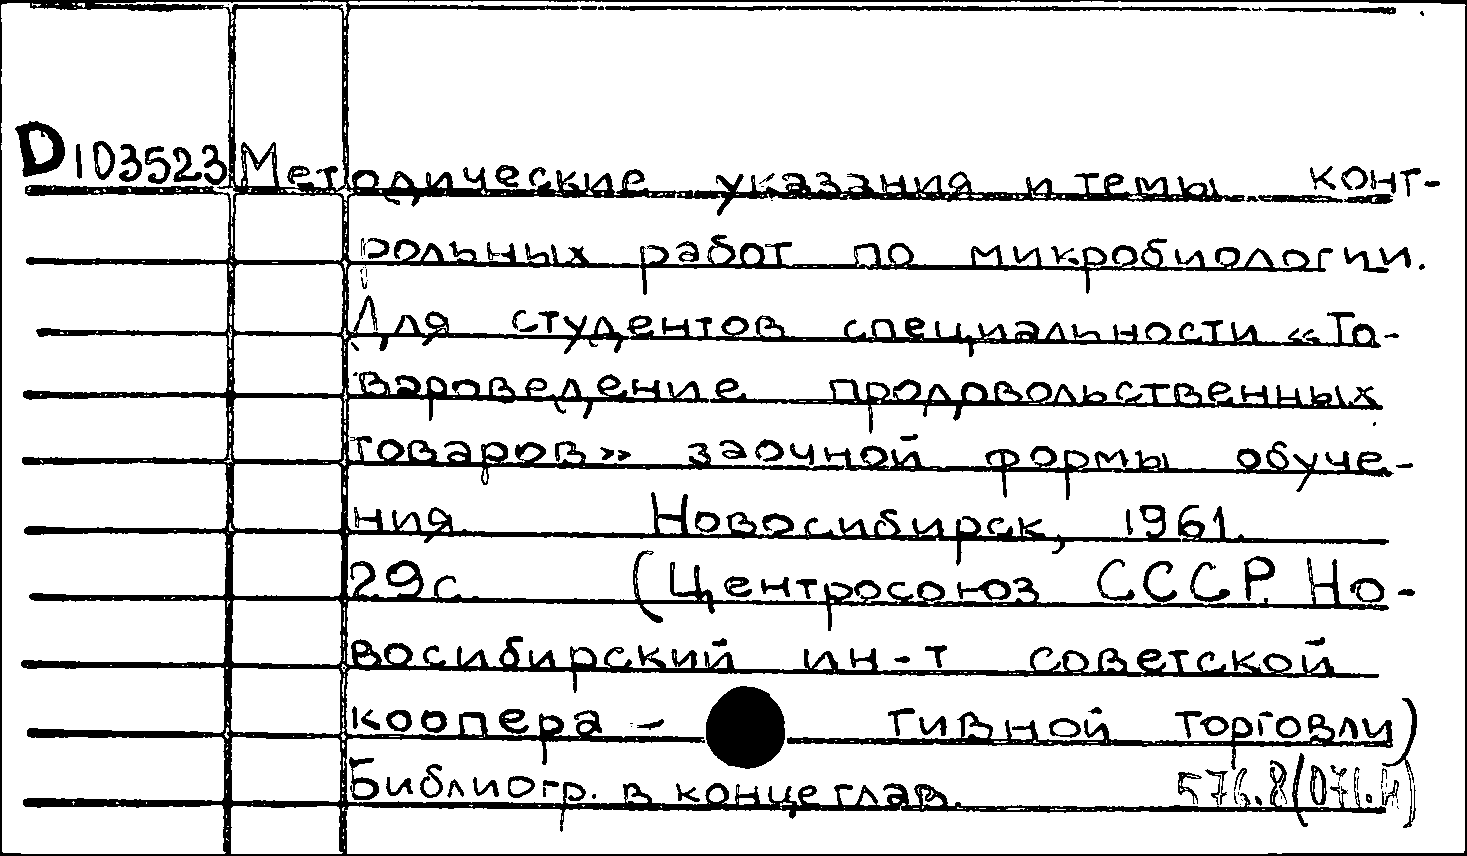 D103523 Методические указания и темы конт-
рольных работ по микробиологии.
Для студентов специальности «То-
вароведение продовольственных
товаров» заочной формы обуче-
ния Новосибирск, 1961.
29с. (Центросоюз СССР. Но-
восибирский ин-т советской
коопера - тивной торговли)
Библиогр. в конце глав. 576.8(071.4)